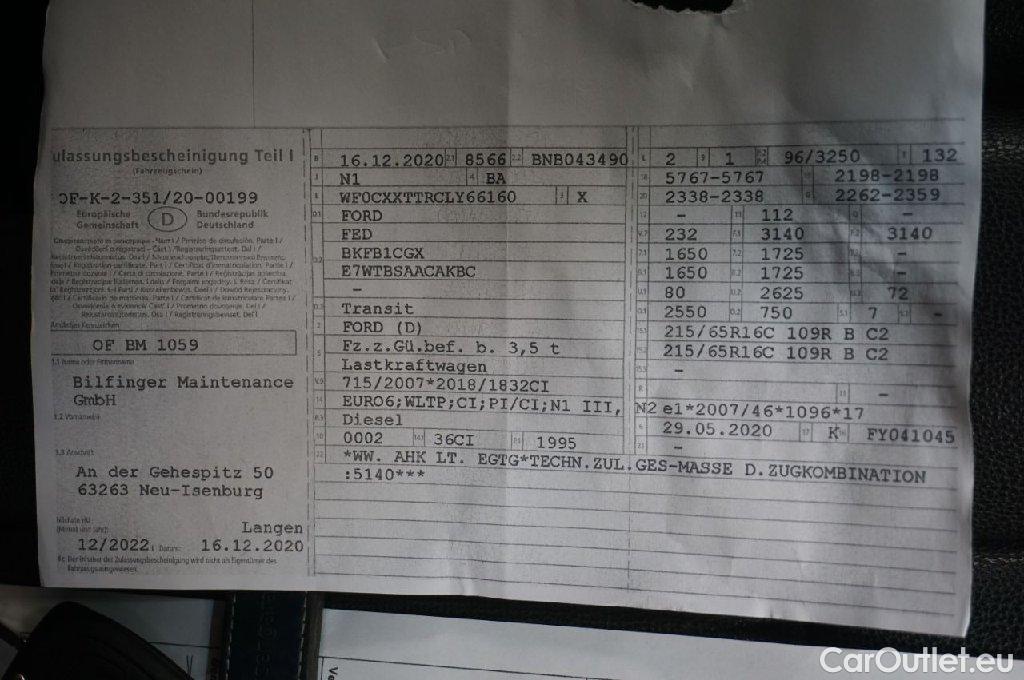 ulassungsbescheinigung Teil I
(Fahrzeugschein)
OF-K-2-351/20-00199
Europäische Gemeinschaft D Bundesrepublik Deutschland
Amtliches Kennzeichen
OF BM 1059
Bilfinger Maintenance
GmbH
An der Gehespitz 50
63263 Neu-Isenburg
Langen
12/2022 16.12.2020
B 16.12.2020 2.1 8566 2.2 BNB043490
J N1 4 BA
E WF0CXXTTRCLY66160 3 X
D.1 FORD
FED
D.2 BKFB1CGX
E7WTBSAACAKBC
–
D.3 Transit
2 FORD (D)
5 Fz.z.Gü.bef. b. 3,5 t
Lastkraftwagen
V.9 715/2007*2018/1832CI
14 EURO6;WLTP;CI;PI/CI;N1 III, N2
P.3 Diesel
10 0002 14.1 36CI P.1 1995
22 *WW. AHK LT. EGTG*TECHN.ZUL.GES-MASSE D.ZUGKOMBINATION
:5140***
L 2 9 1 P.2 P.4 96/3250 T 132
18 5767-5767 19 2198-2198
20 2338-2338 G 2262-2359
12 – 13 112 Q –
V.7 232 F.1 3140 F.2 3140
7.1 1650 7.2 1725
8.1 1650 8.2 1725
U.1 80 U.2 2625 U.3 72
O.1 2550 O.2 750 S.1 7 S.2 –
15.1 215/65R16C 109R B C2
15.2 215/65R16C 109R B C2
15.3 –
R 11 –
K e1*2007/46*1096*17
6 29.05.2020 17 K 16 FY041045
21 –
CarOutlet.eu